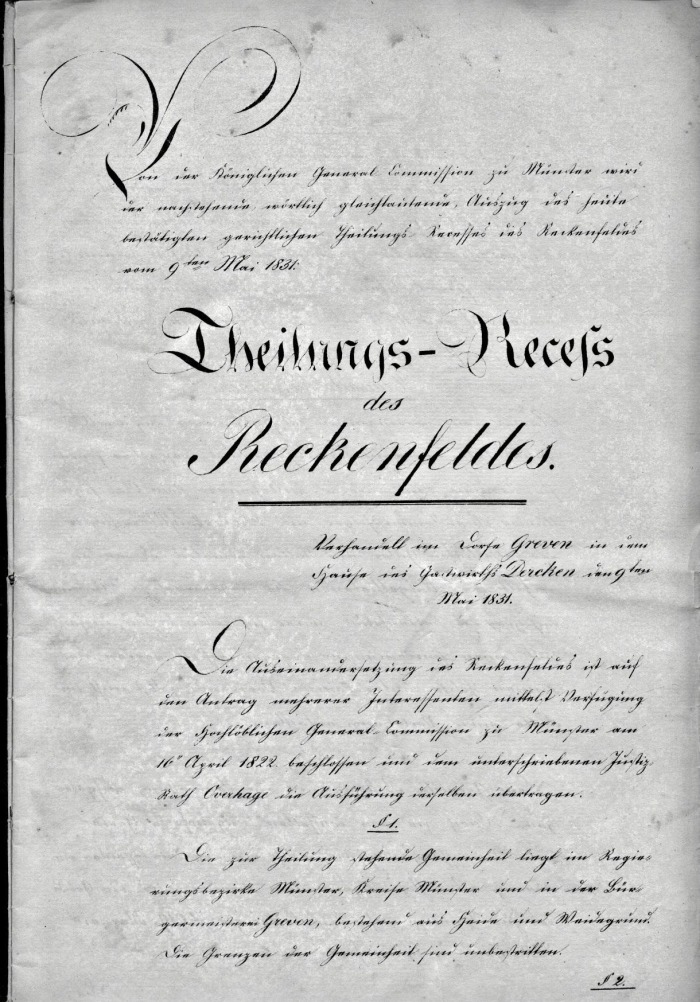 Von der Königlichen General Commission zu Münster wird
der nachstehende, wörtlich gleichlautende, Auszug des heute
bestätigten gerichtlichen Theilungs Recesses des Reckenfeldes
vom 9ten Mai 1831.
Theilungs-Recess
des
Reckenfeldes.
Verhandelt im Dorfe Greven in dem
Hause des Gastwirths Dercken den 9ten
Mai 1831.
Die Auseinandersetzung des Reckenfeldes ist auf
den Antrag mehrerer Interessenten mittelst Verfügung
der Hochlöblichen General-Commission zu Münster am
16n April 1822 beschlossen und dem unterschriebenen Justiz-
Rath Overhage die Ausführung derselben übertragen.
§ 1.
Die zur Theilung stehende Gemeinheit liegt im Regie-
rungsbezirke Münster, Kreise Münster und in der Bür-
germeisterei Greven, bestehend aus Heide und Weidegrund.
Die Grenzen der Gemeinheit sind unbestritten.
§ 2.